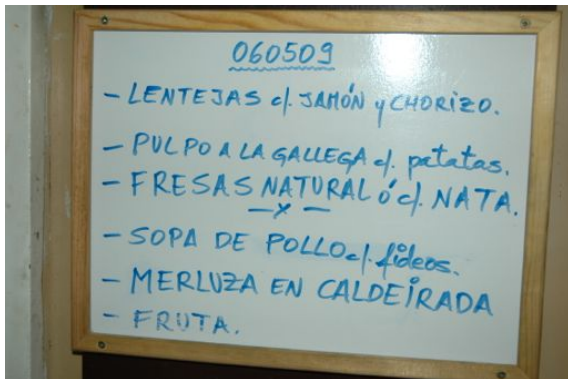 060509
- LENTEJAS c/. JAMÓN y CHORIZO.
- PULPO A LA GALLEGA c/. patatas.
- FRESAS NATURAL ó c/. NATA.
- x -
- SOPA DE POLLO c/. fideos.
- MERLUZA EN CALDEIRADA
- FRUTA.